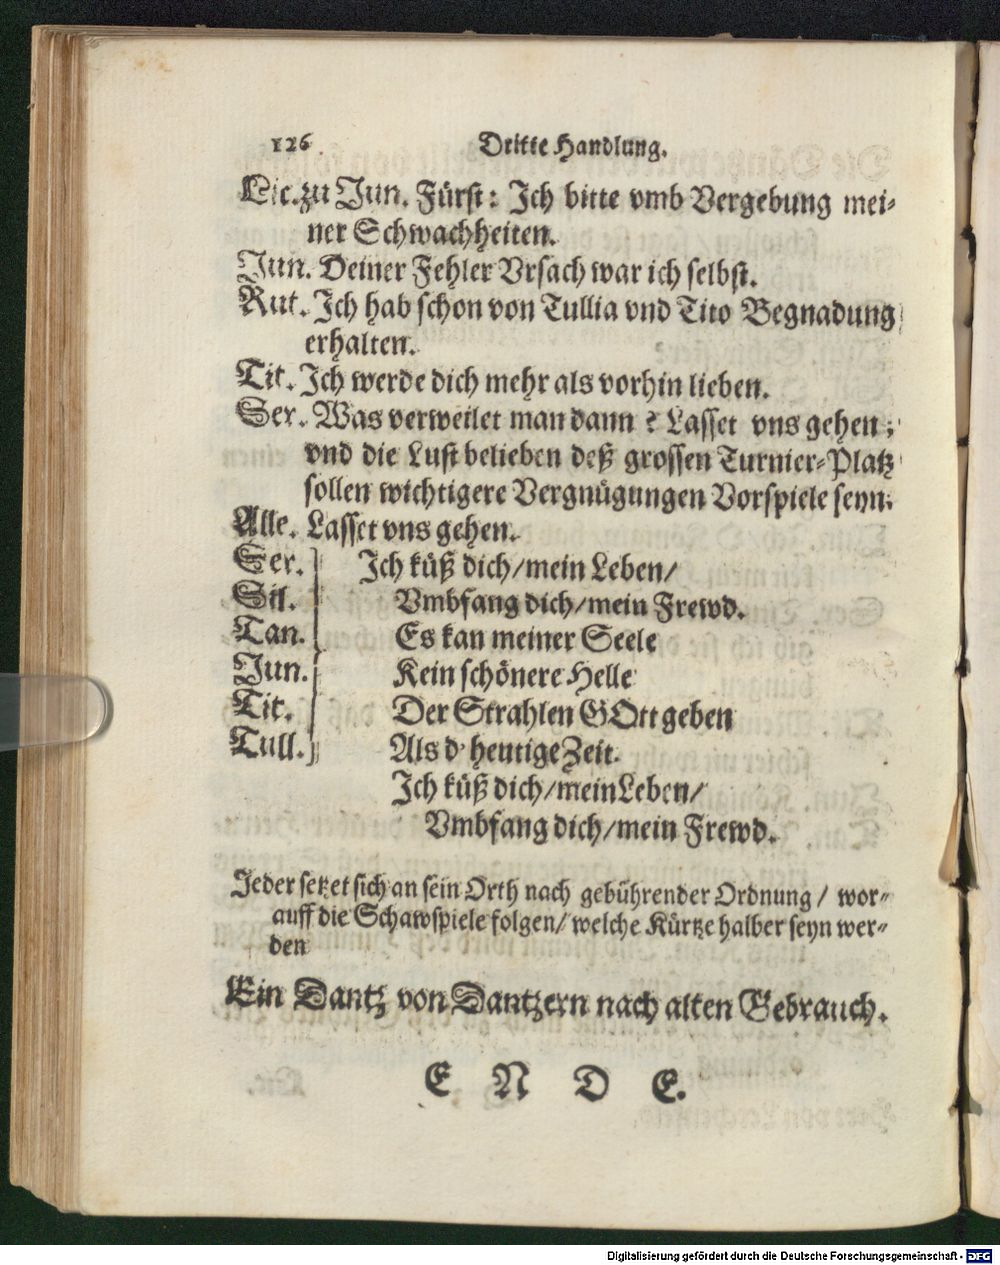 126 Dritte Handlung.
Lic. zu Jun. Fürst: Ich bitte vmb Vergebung mei-
ner Schwachheiten.
Jun. Deiner Fehler Vrsach war ich selbst.
Rut. Ich hab schon von Tullia vnd Tito Begnadung
erhalten.
Tit. Ich werde dich mehr als vorhin lieben.
Ser. Was verweilet man dann? Lasset vns gehen;
vnd die Lustbelieben deß grossen Turnier-Platz
sollen wichtigere Vergnügungen Vorspiele seyn.
Alle. Lasset vns gehen.
Ser. Ich küß dich/mein Leben/
Sil. Vmbfang dich/mein Frewd.
Tan. Es kan meiner Seele
Jun. Kein schönere Helle
Tit. Der Strahlen GOtt geben
Tull. Als d' heutige Zeit.
Ich küß dich/mein Leben/
Vmbfang dich/mein Frewd.
Jeder setzet sich an sein Orth nach gebührender Ordnung / wor-
auff die Schawspiele folgen/ welche Kürtze halber seyn wer-
den
Ein Dantz von Dantzern nach alten Gebrauch.
E N D E.
Digitalisierung gefördert durch die Deutsche Forschungsgemeinschaft - DFG